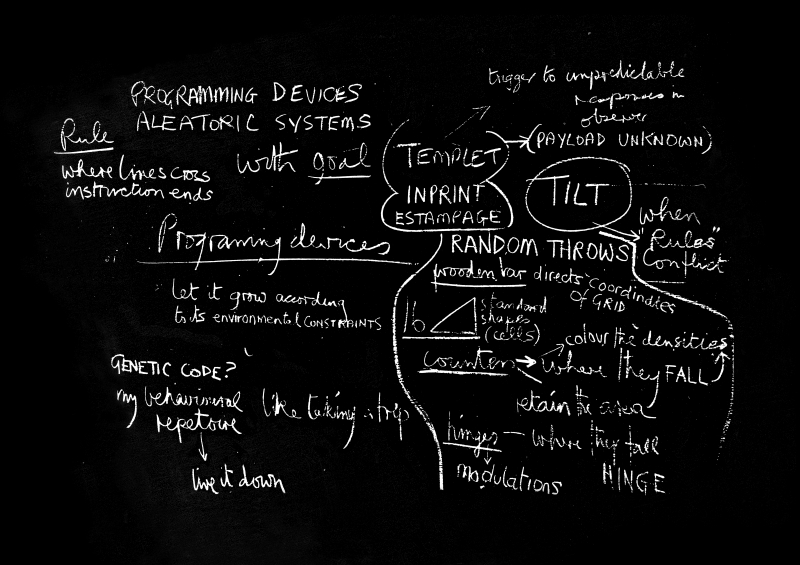 PROGRAMMING DEVICES
ALEATORIC SYSTEMS
with goal
Rule
where lines cross
instruction ends
Programing devices
let it grow according
to its environmental CONSTRAINTS
GENETIC CODE?
my behavioural
repetoire
like taking a trip
live it down
trigger to unpredictable
responses in
observer
(PAYLOAD UNKNOWN)
TEMPLET
INPRINT
ESTAMPAGE
TILT
when
"Rules"
Conflict
RANDOM THROWS
wooden bar directs coordinates
of GRID
16
standard
shapes
(cells)
colour the densities
counters → where they FALL
retain the area
hinges — where they fall
modulations
HINGE